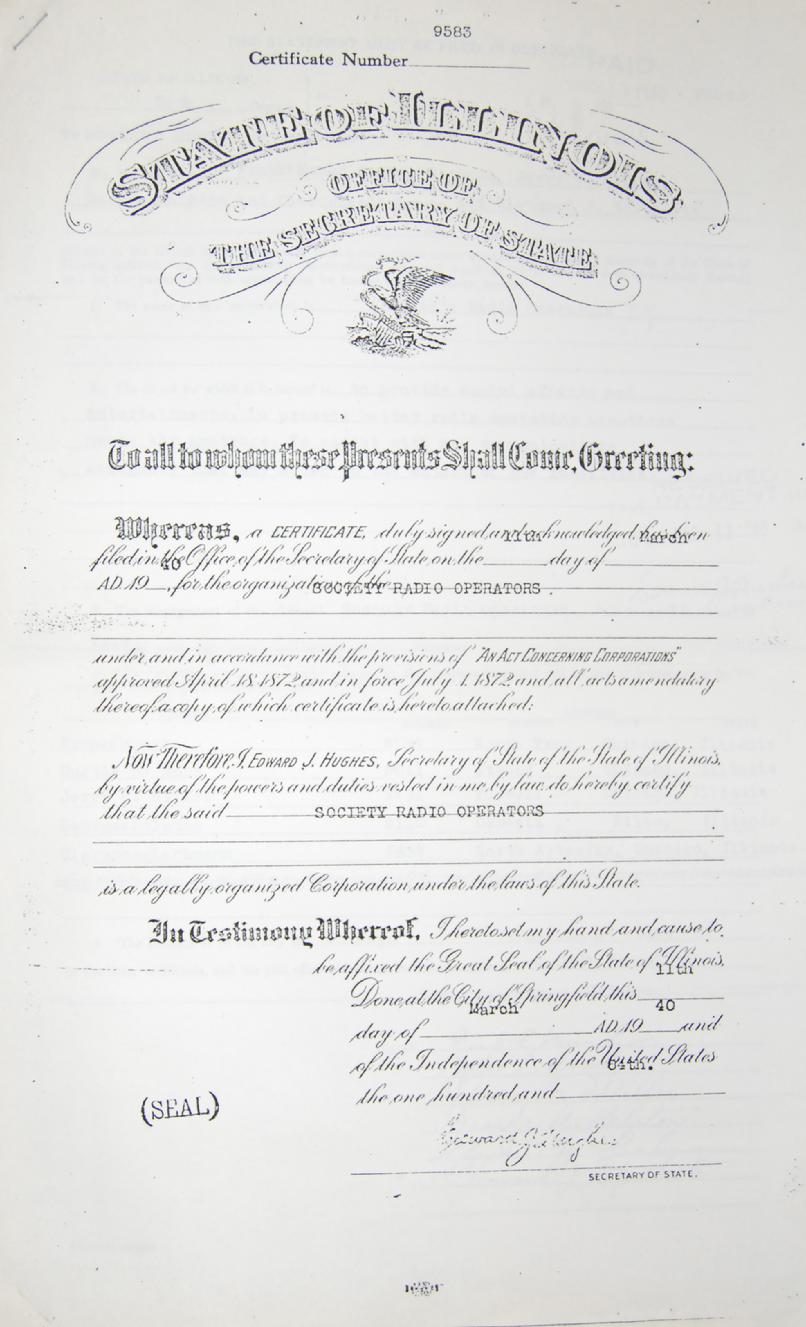 9583
Certificate Number
STATE OF ILLINOIS
OFFICE OF
THE SECRETARY OF STATE
To all to whom these Presents Shall Come, Greeting:
Whereas, a CERTIFICATE, duly signed and acknowledged has been
11th March
filed in the Office of the Secretary of State on the ____ day of ____
40
A.D. 19__, for the organization of the SOCIETY RADIO OPERATORS .
under and in accordance with the provisions of "AN ACT CONCERNING CORPORATIONS"
approved April 18, 1872, and in force July 1, 1872, and all acts amendatory
thereof, a copy of which certificate is hereto attached;
Now Therefore, I, EDWARD J. HUGHES, Secretary of State of the State of Illinois,
by virtue of the powers and duties vested in me by law, do hereby certify
that the said SOCIETY RADIO OPERATORS
is a legally organized Corporation under the laws of this State.
In Testimony Whereof, I hereto set my hand and cause to
be affixed the Great Seal of the State of Illinois,
11th
Done at the City of Springfield this ____
March 40
day of ____ A.D. 19__ and
of the Independence of the United States
64th.
the one hundred and ____
(SEAL)
Edward J. Hughes
SECRETARY OF STATE.